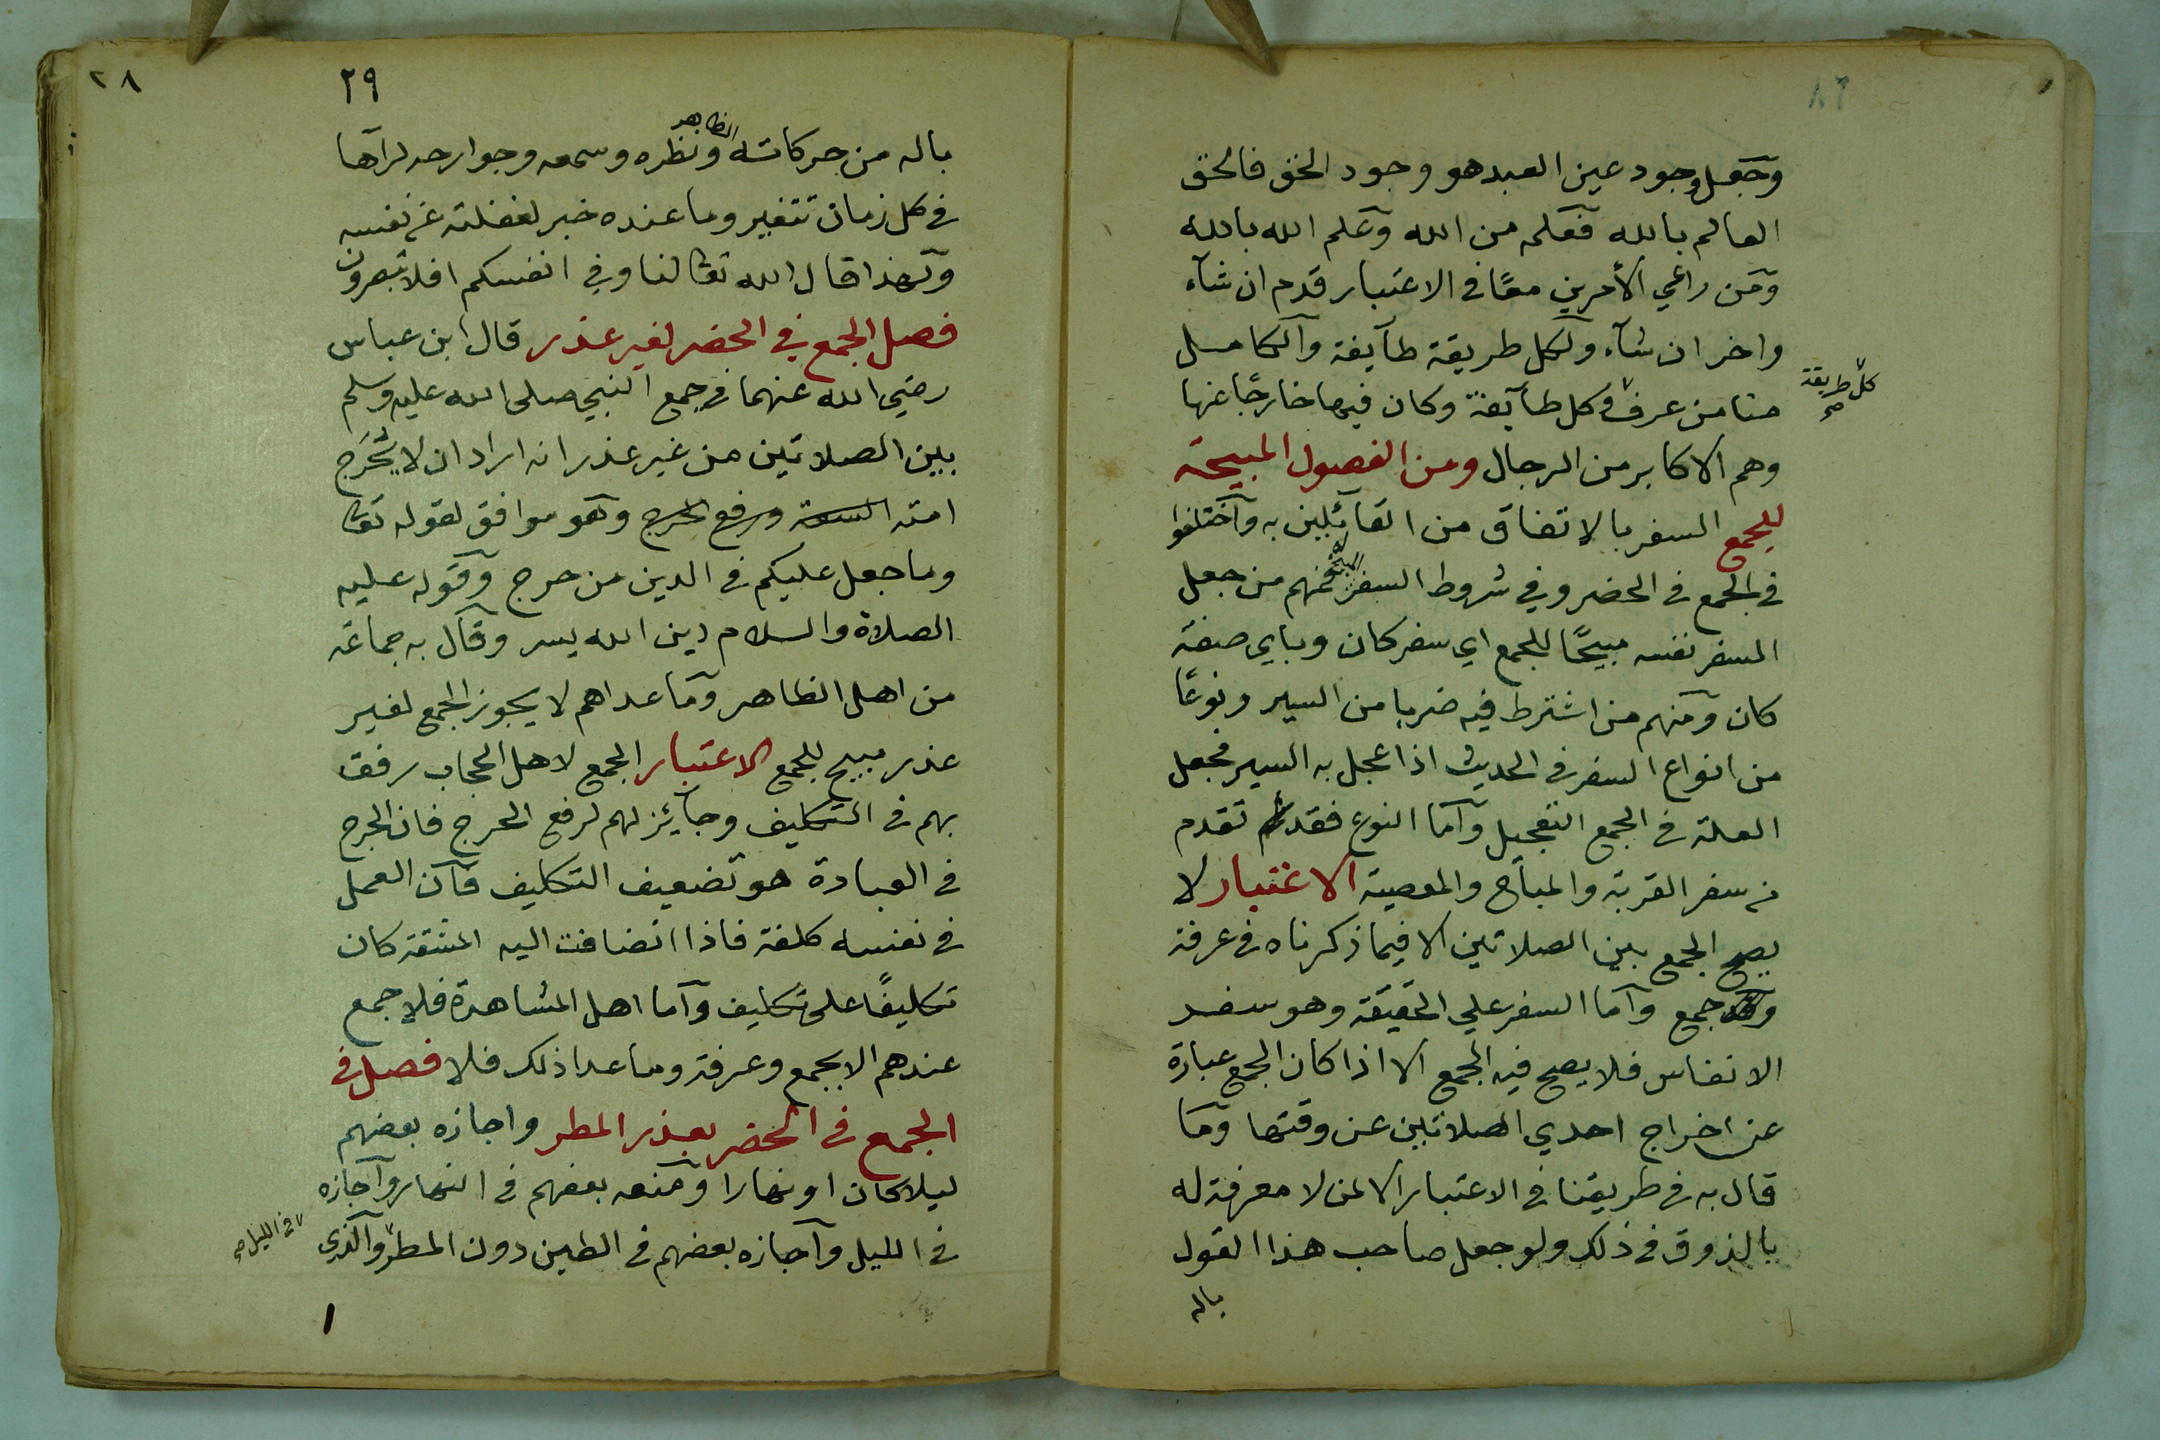 وجعل وجود عين العبد هو وجود الحق فالحق
العالم بالله فعلمه من الله وعلم الله بالله
ومن راعي الأمرين معًا في الاعتبار قدم ان شآء
واخر ان شآء ولكل طريقة طآيفة والكامل
منا من عرف كل طآيفة وكان فيها خارجًا عنها
كل طريقة صح
وهم الاكابر من الرجال ومن الفصول المبيحة
للجمع السفر بالاتفاق من القآئلين به واختلفوا
في الجمع في الحضر وفي شروط السفر المبيح فمنهم من جعل
السفر نفسه مبيحًا للجمع اي سفر كان وباي صفة
كان ومنهم من اشترط فيه ضربا من السير ونوعًا
من انواع السفر في الحديث اذا عجل به السير فجعل
العلة في الجمع التعجيل وآما النوع فقد تقدم
من سفر القربة والمباح والمعصية الاعتبار لا
يصح الجمع بين الصلاتين الا فيما ذكرناه في عرفة
وجمع وآما السفر علي الحقيقة وهو سفر
الانفاس فلا يصح فيه الجمع الا اذا كان الجمع عبارة
عن اخراج احدي الصلاتين عن وقتها وما
قال به في طريقنا في الاعتبار الا من لا معرفة له
بالذوق في ذلك ولو جعل صاحب هذا القول
باله
٢٨
٢٩
باله من حركاته الظاهر ونظره وسمعه وجوارحه لرآها
في كل زمان تتغير وما عنده خبر لغفلته عن نفسه
ولهذا قال الله تعا لنا وفي انفسكم افلا تبصرون
فصل الجمع في الحضر لغير عذر قال ابن عباس
رضي الله عنهما في جمع النبي صلى الله عليه وسلم
بين الصلاتين من غير عذر انه اراد ان لا يحرج
امته السعة ورفع الحرج وهو موافق لقوله تعا
وما جعل عليكم في الدين من حرج وقوله عليه
الصلاة والسلام دين الله يسر وقال به جماعة
من اهل الظاهر وما عداهم لا يجوز الجمع لغير
عذر مبيح للجمع الاعتبار الجمع لاهل الحجاب رفق
بهم في التكليف وجآيز لهم لرفع الحرج فان الحرج
في العبادة هو تضعيف التكليف فآن العمل
في نفسه كلفة فاذا انضافت اليه المشقة كان
تكليفًا على تكليف وآما اهل المشاهدة فلا جمع
عندهم الا بجمع وعرفة وما عدا ذلك فلا فصل في
الجمع في الحضر بعذر المطر واجازه بعضهم
ليلا كان او نهارا ومنعه بعضهم في النهار وآجازه
في الليل وآجازه بعضهم في الطين دون المطر والذي
في الليل صح